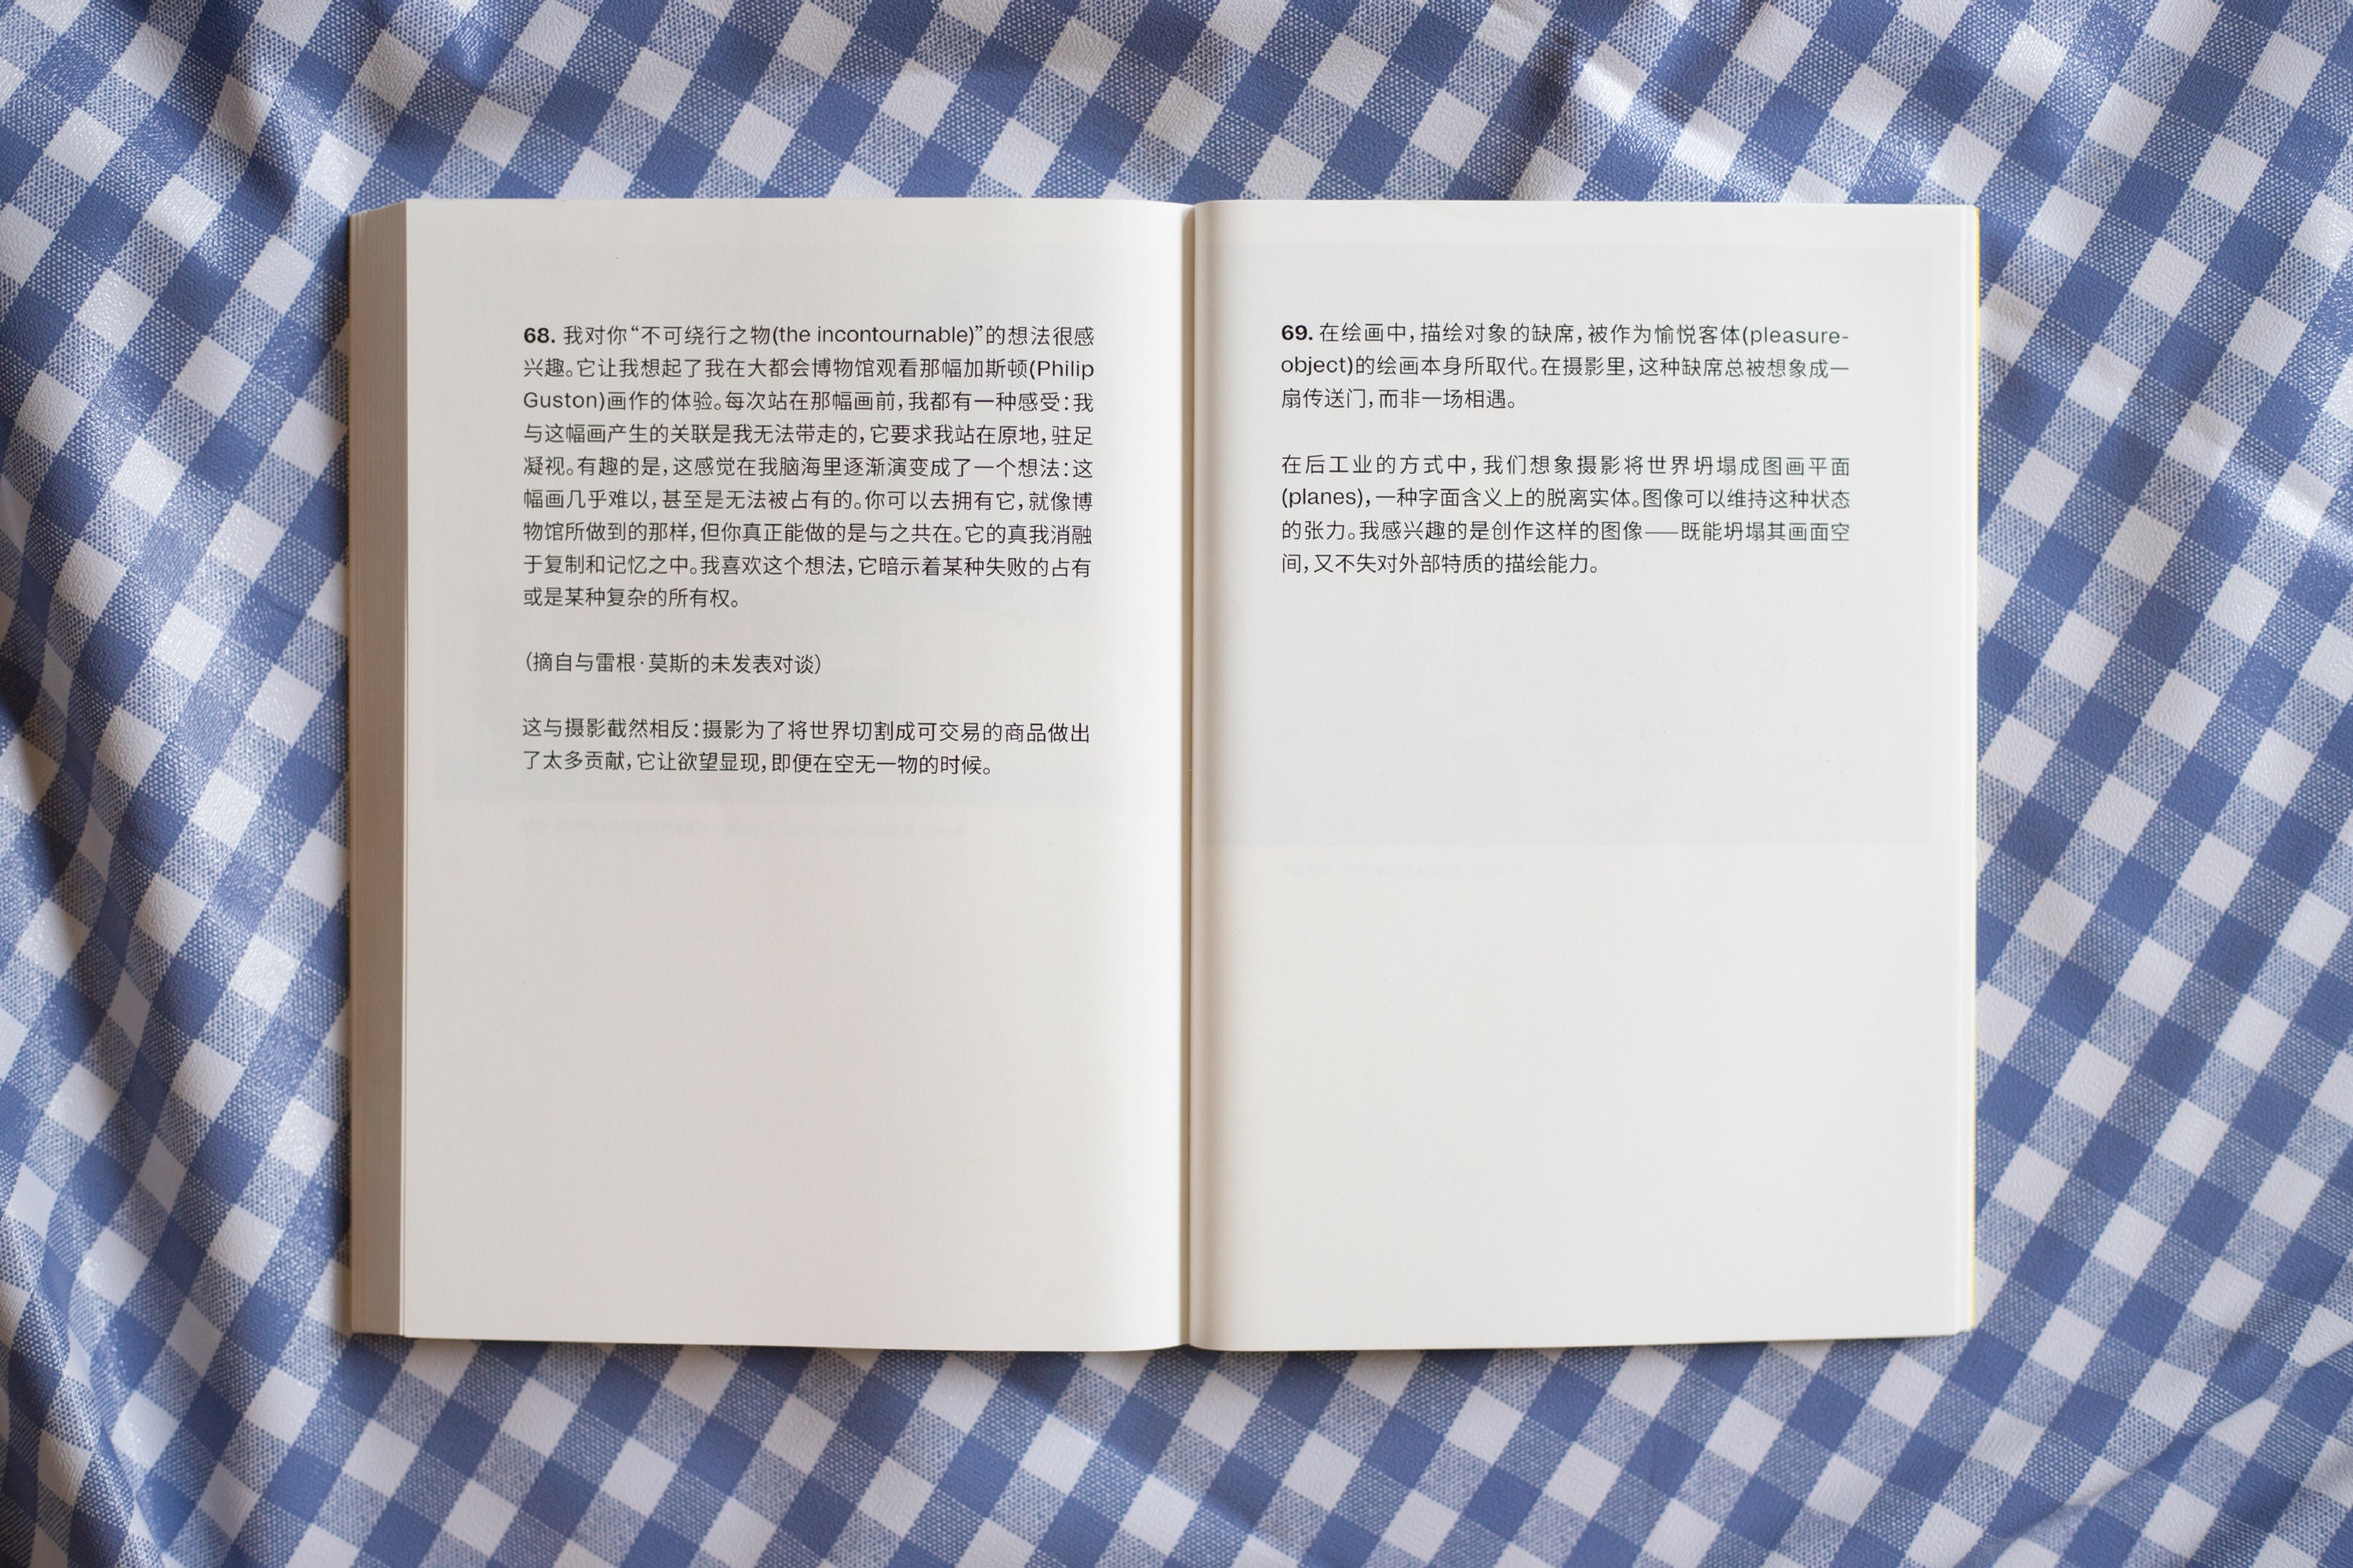 68. 我对你“不可绕行之物(the incontournable)”的想法很感
兴趣。它让我想起了我在大都会博物馆观看那幅加斯顿(Philip
Guston)画作的体验。每次站在那幅画前,我都有一种感受:我
与这幅画产生的关联是我无法带走的,它要求我站在原地,驻足
凝视。有趣的是,这感觉在我脑海里逐渐演变成了一个想法:这
幅画几乎难以,甚至是无法被占有的。你可以去拥有它,就像博
物馆所做到的那样,但你真正能做的是与之共在。它的真我消融
于复制和记忆之中。我喜欢这个想法,它暗示着某种失败的占有
或是某种复杂的所有权。
(摘自与雷根·莫斯的未发表对谈)
这与摄影截然相反:摄影为了将世界切割成可交易的商品做出
了太多贡献,它让欲望显现,即便在空无一物的时候。
69. 在绘画中,描绘对象的缺席,被作为愉悦客体(pleasure-
object)的绘画本身所取代。在摄影里,这种缺席总被想象成一
扇传送门,而非一场相遇。
在后工业的方式中,我们想象摄影将世界坍塌成图画平面
(planes),一种字面含义上的脱离实体。图像可以维持这种状态
的张力。我感兴趣的是创作这样的图像——既能坍塌其画面空
间,又不失对外部特质的描绘能力。